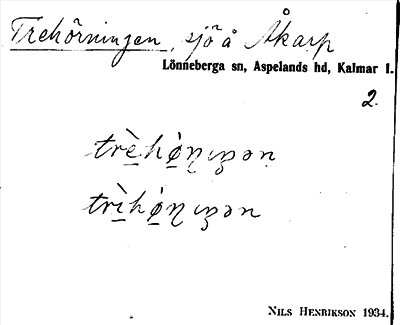 Trehörningen, sjö å Åkarp
Lönneberga sn, Aspelands hd, Kalmar l.
2.
trè̲hǫ̲́ɳıŋən
trì̲hǫ̲́ɳıŋən
NILS HENRIKSON 1934.